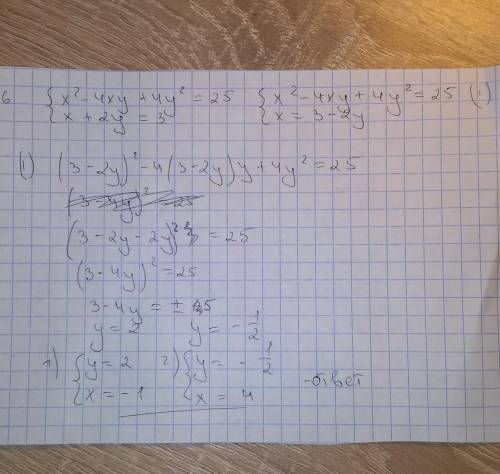 6 { x² - 4xy + 4y² = 25   { x² - 4xy + 4y² = 25 (1)
{ x + 2y = 3   { x = 3 - 2y
(1) (3 - 2y)² - 4(3 - 2y)y + 4y² = 25
(3 - 2y - 2y)² = 25
(3 - 4y)² = 25
3 - 4y = ± 5
y = 2   y = - 1/2
1) { y = 2   2) { y = - 1/2
{ x = -1   { x = 4   - ответ